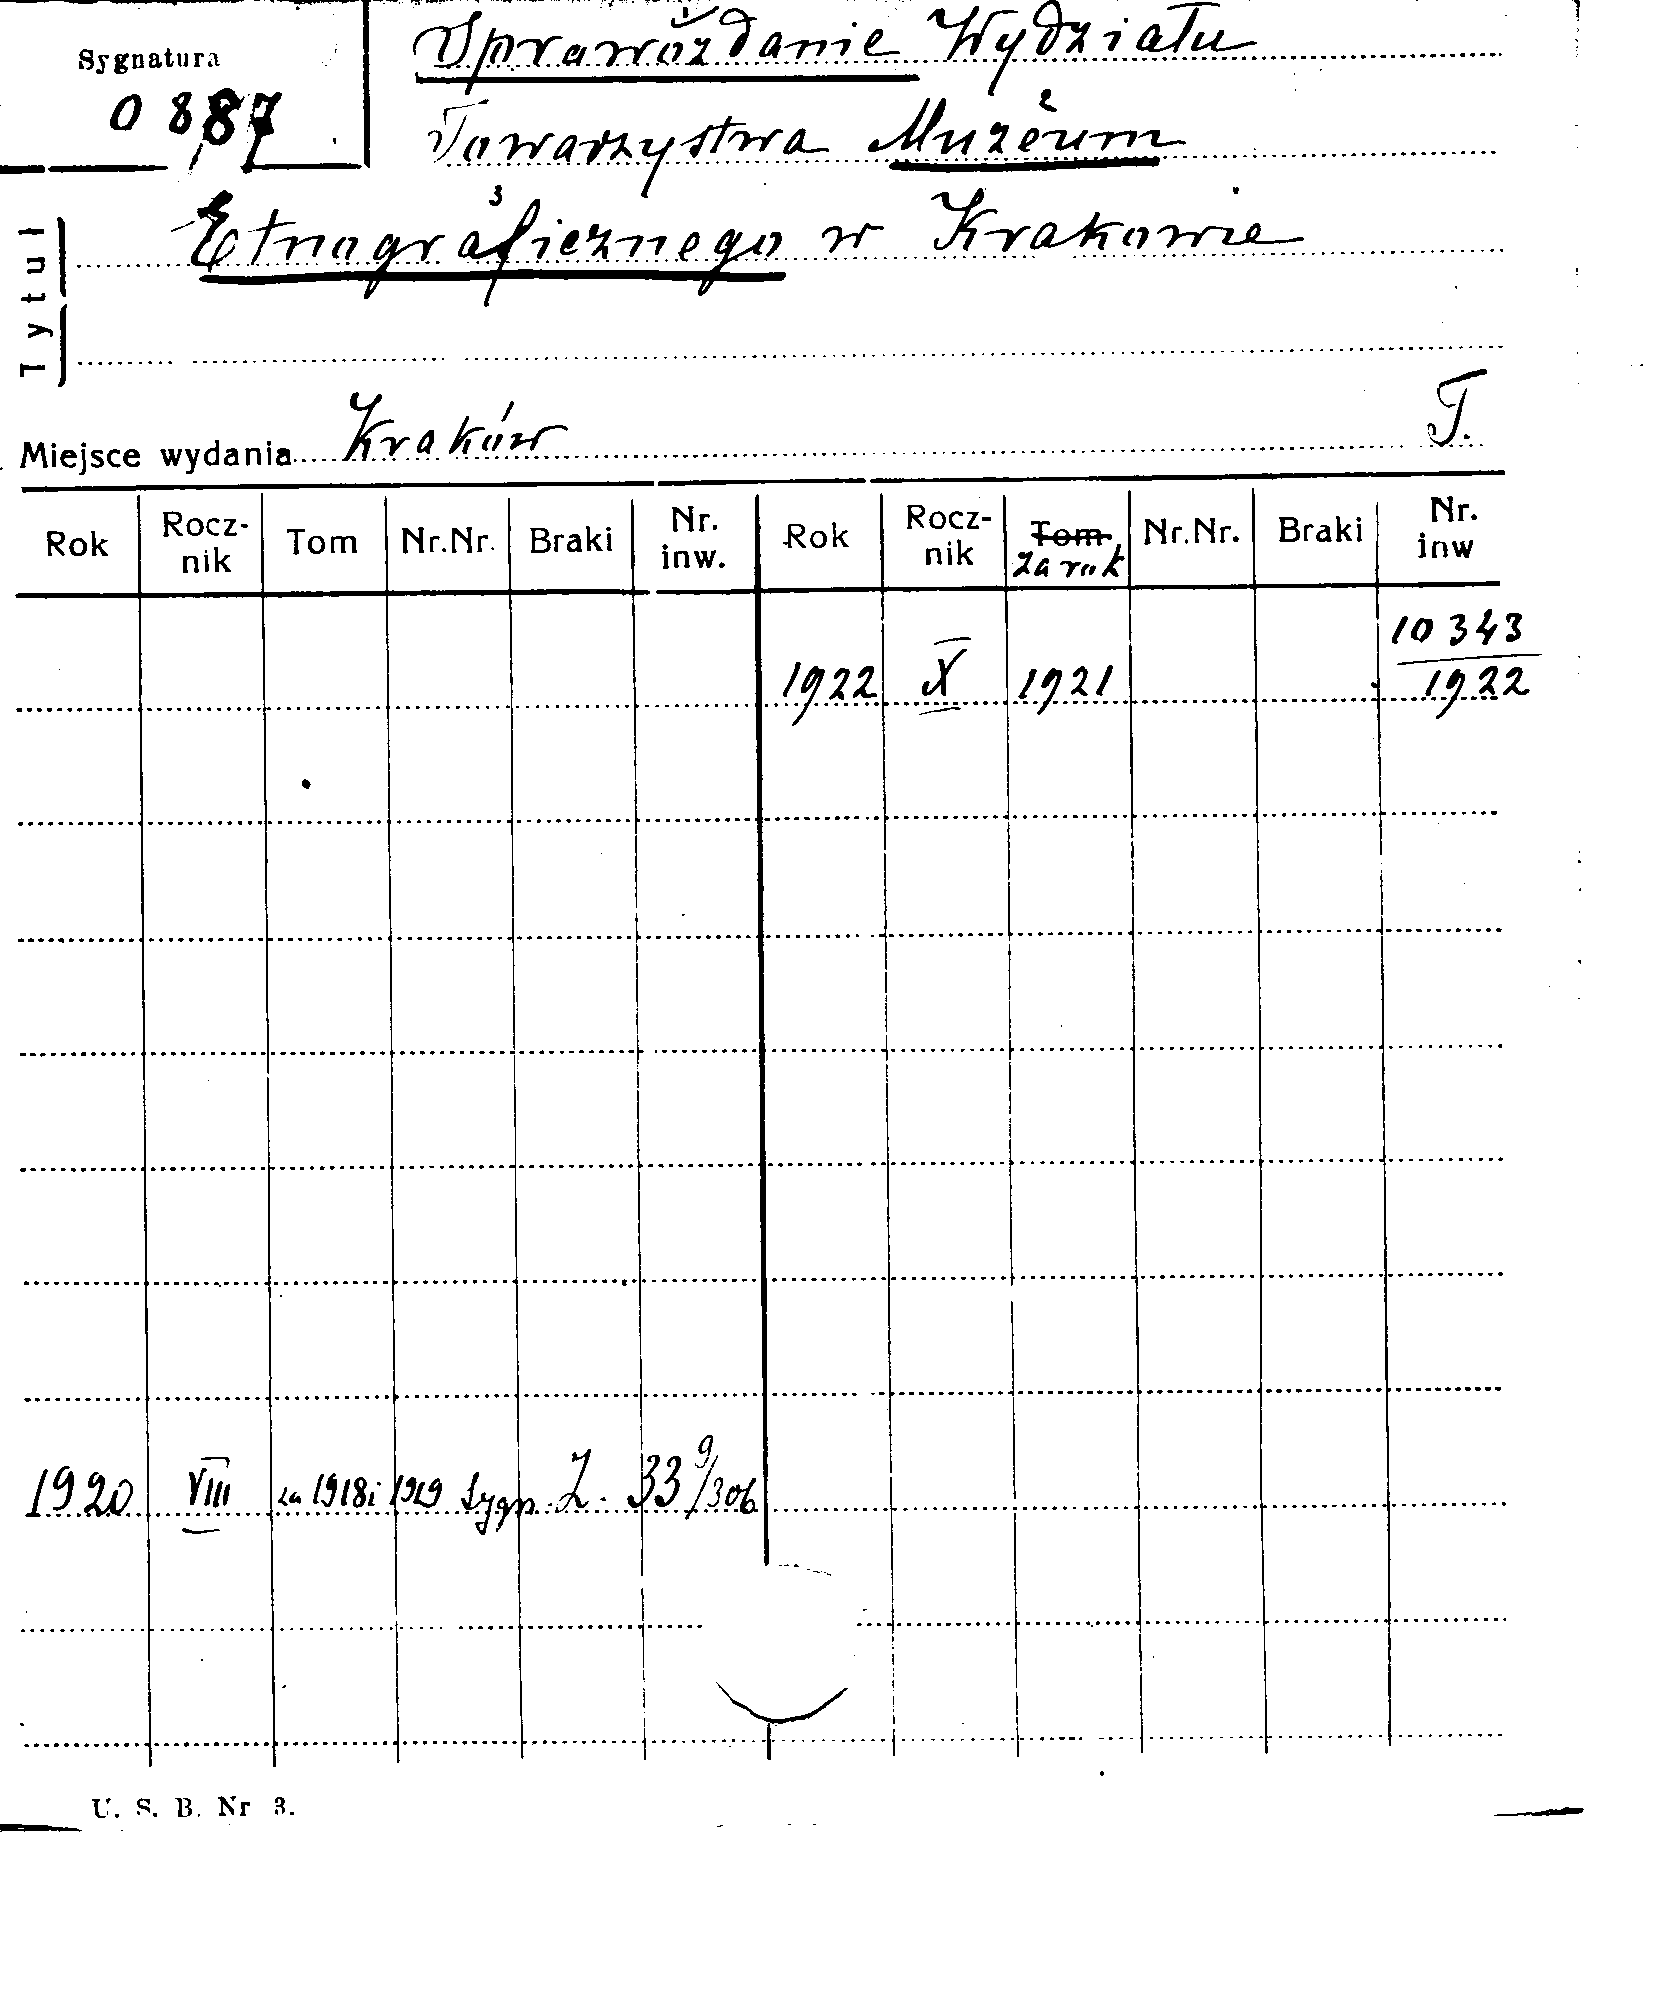 Sygnatura
0 887
Sprawozdanie Wydziału
Towarzystwa Muzeum
Etnograficznego w Krakowie
Tytuł
Miejsce wydania Kraków T.
Rok Rocz-nik Tom Nr.Nr. Braki Nr. inw. Rok Rocz-nik Tom za rok Nr.Nr. Braki Nr. inw
10 343
1922 X 1921 1922
1920 VIII za 1918 i 1919 Sygn. Z. 33 9/306
U. S. B. Nr 3.